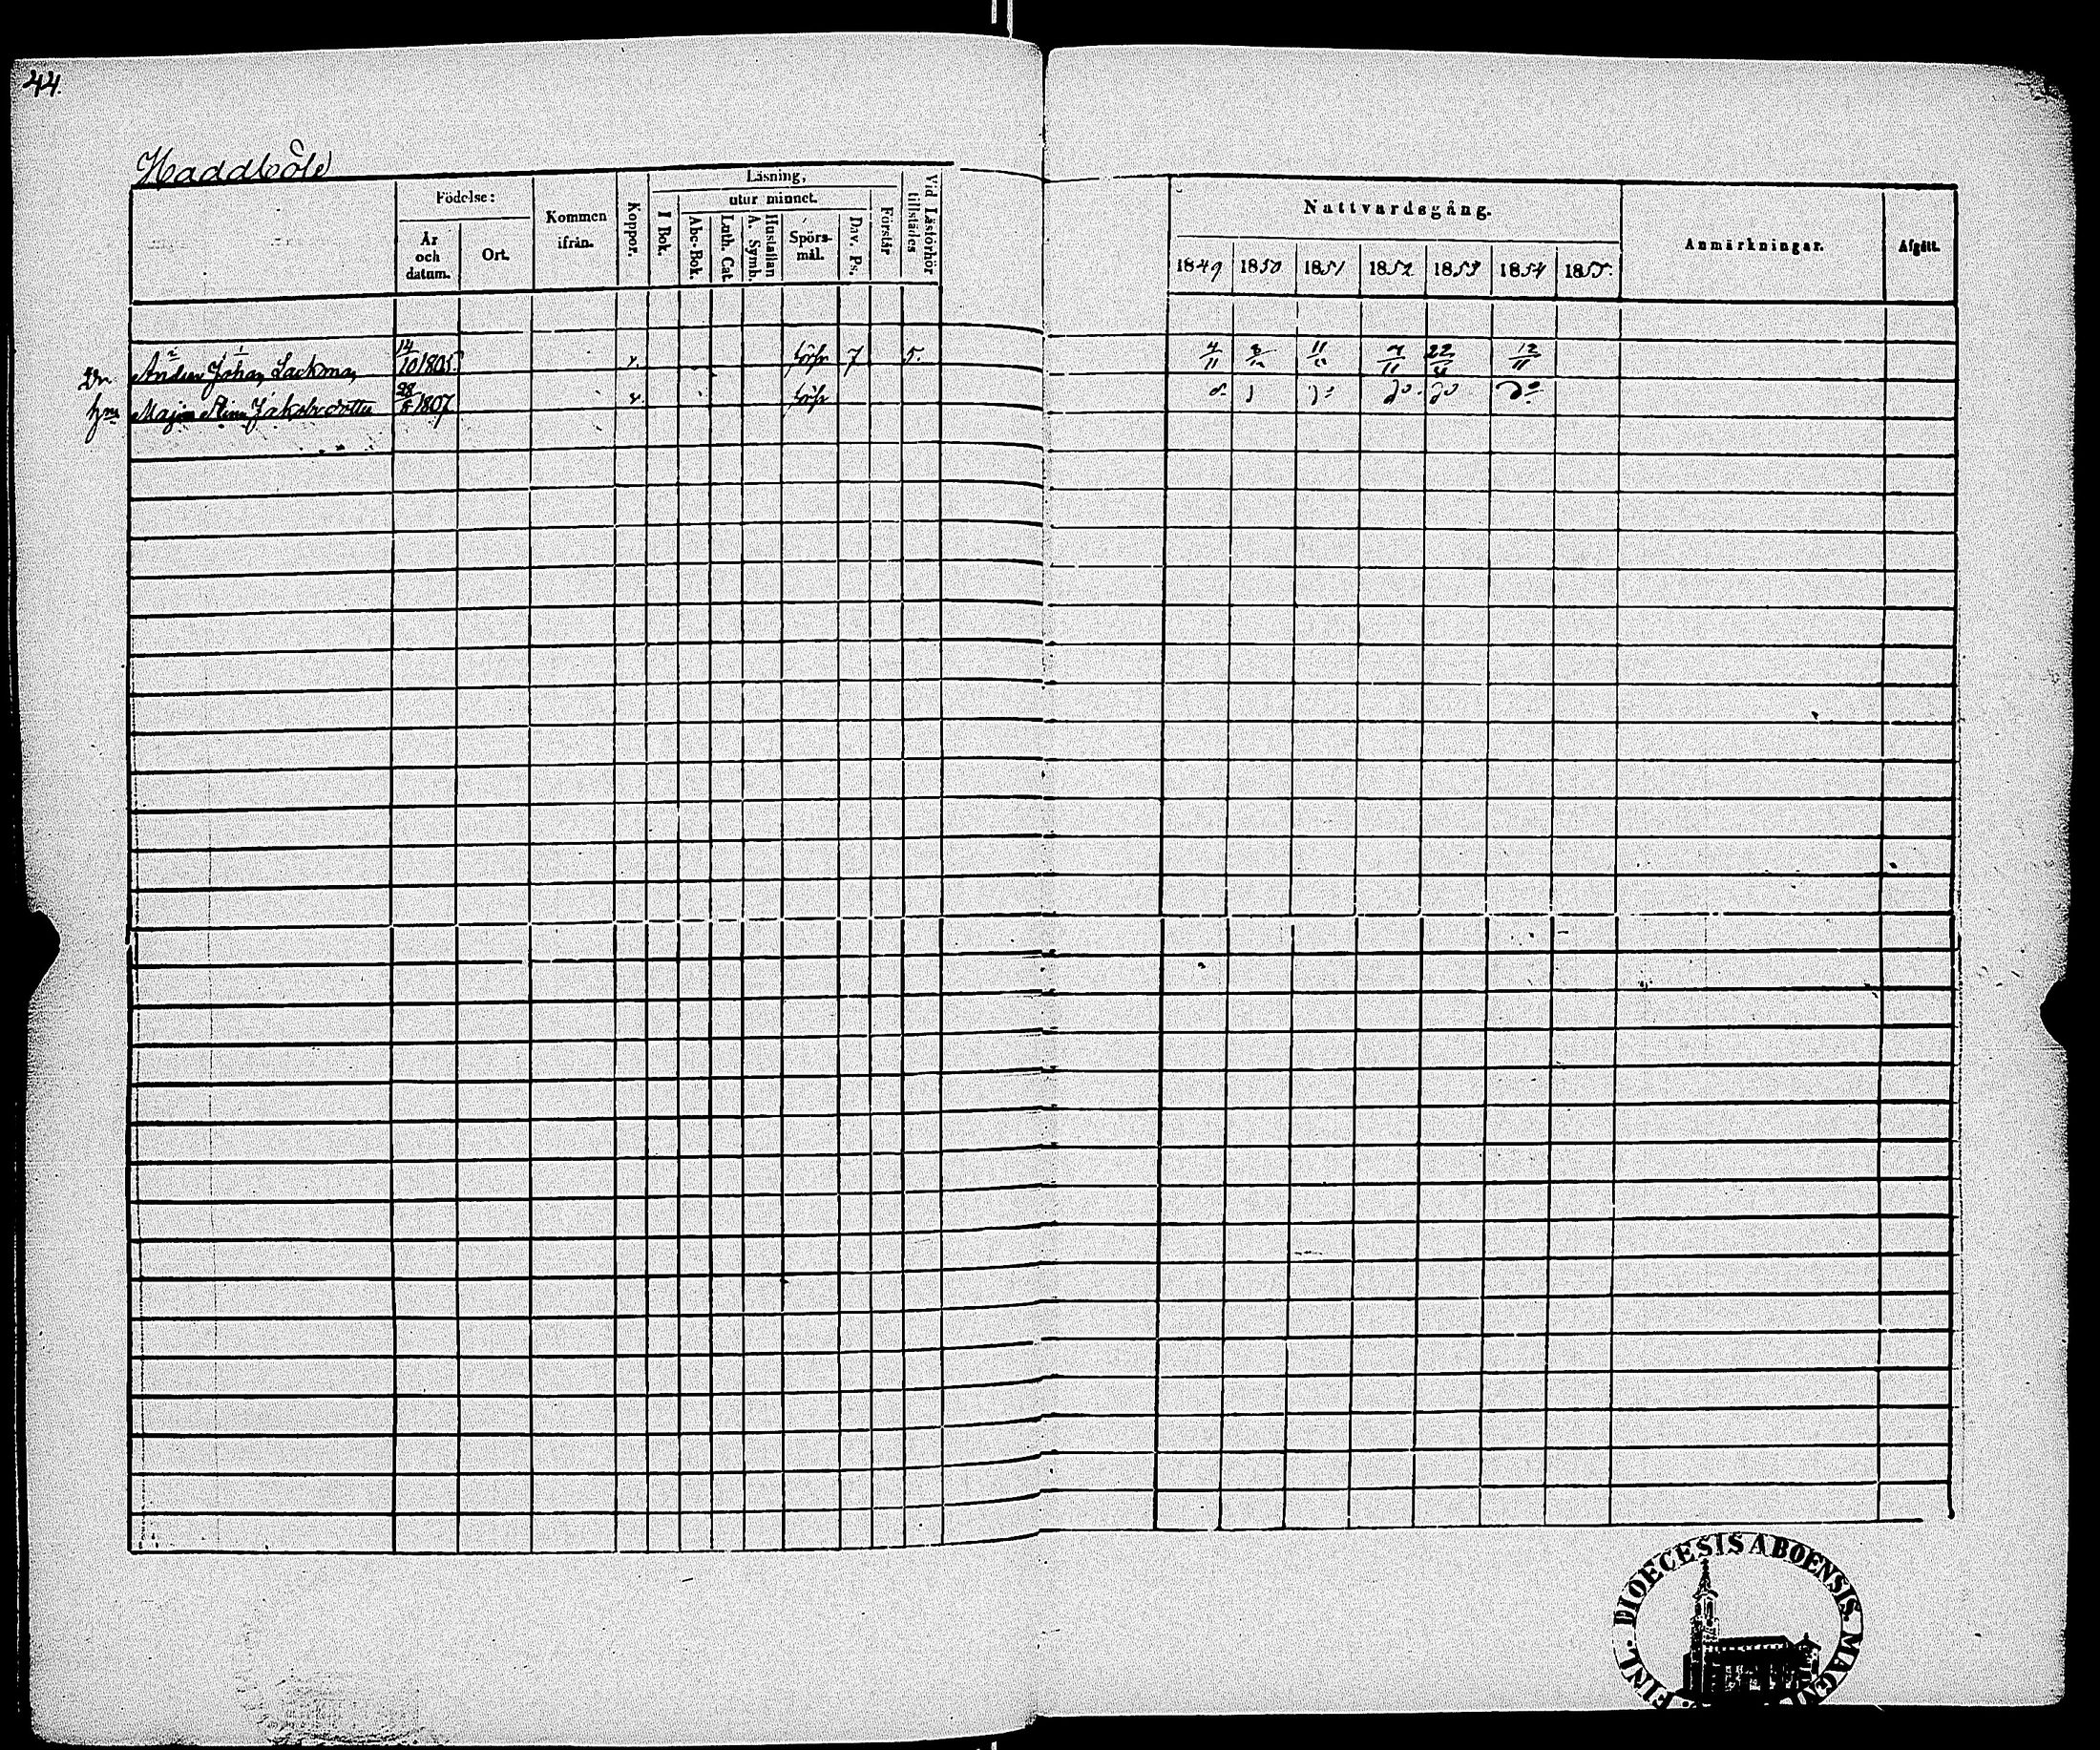 44.
Haddböle
Födelse:
År och datum.
Ort.
Kommen ifrån.
Koppor.
Läsning,
I Bok.
utur minnet.
Abc-Bok.
Luth. Cat.
Hustaflan A. Symb.
Spörs-mål.
Dav. Ps.
Förstår
Vid Läsförhör tillstädes
Nattvardsgång.
1849 1850 1851 1852 1853 1854 1855.
Anmärkningar.
Afgått.
2 1
Anders Johan Lackman 14/10 1805. x. förhr 7 5. 4/11 11/11 7/11 12/11
Maja Stina Jakobsdotter 28/8 1807 x. förhr do do do
FINL. DIOECESIS ABOENSIS. MAGNI